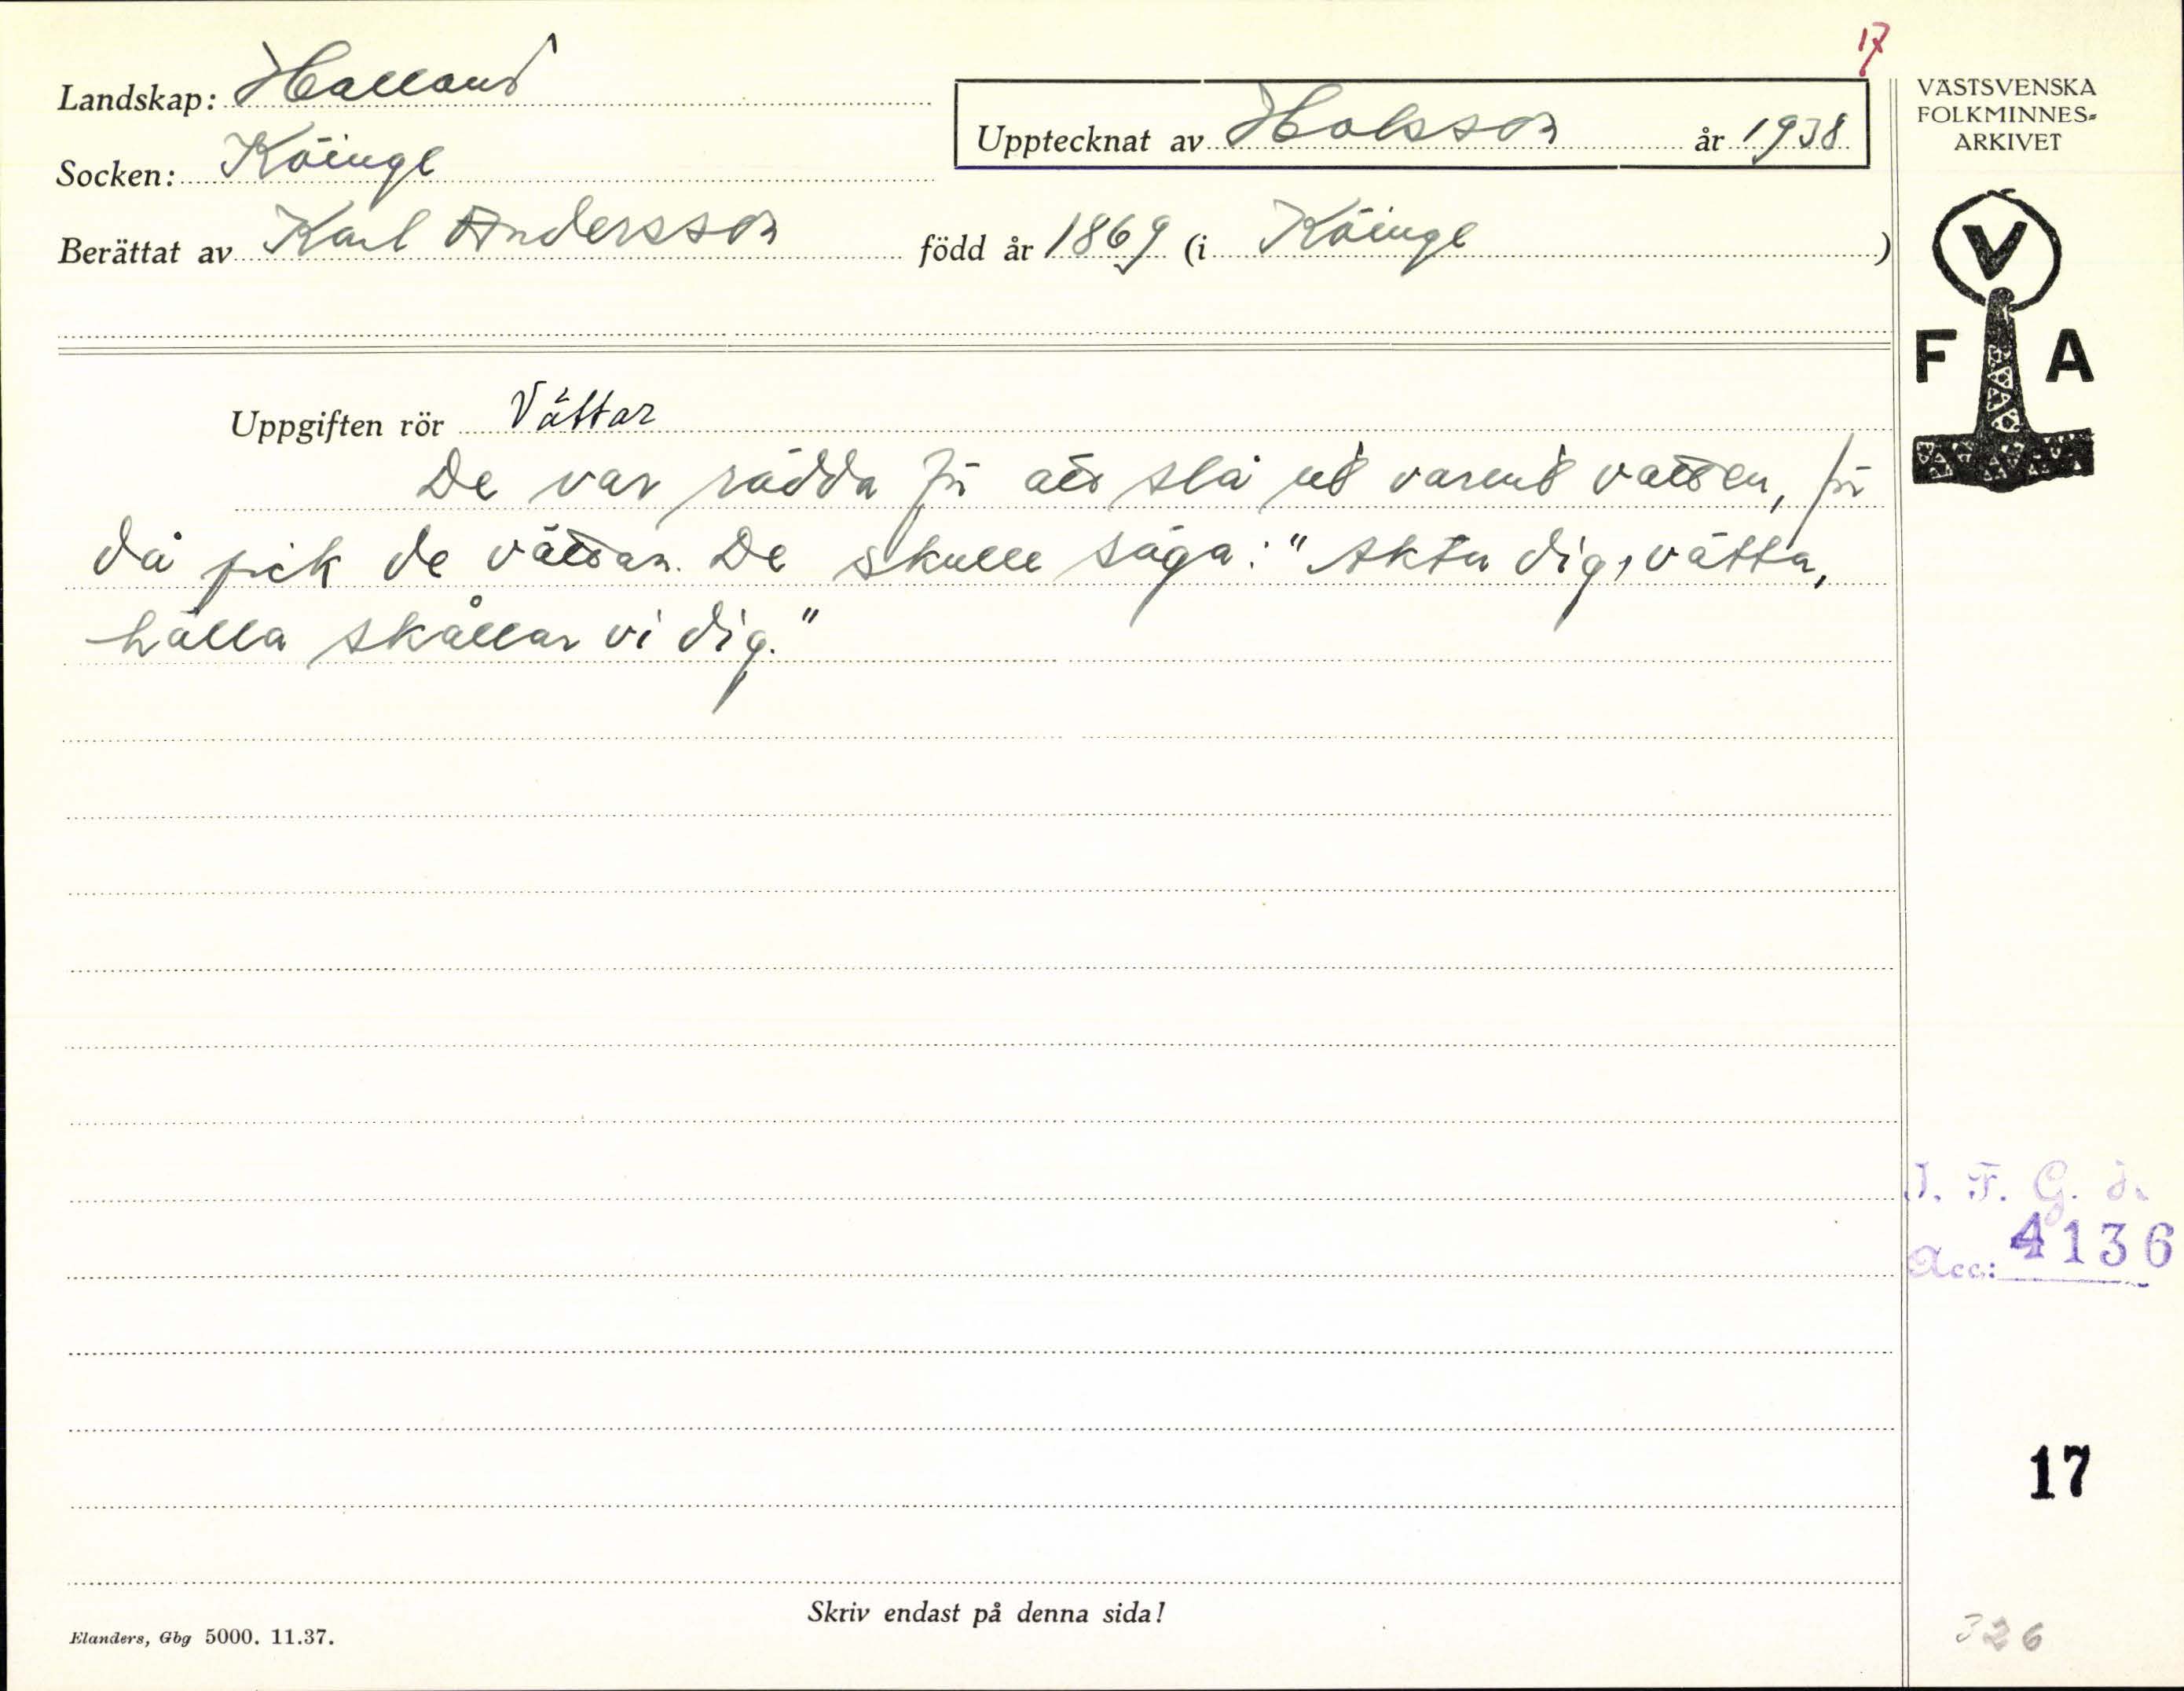 17
Landskap: Halland
Upptecknat av Holsson år 1938
VÄSTSVENSKA
FOLKMINNES=
ARKIVET
Socken: Köinge
Berättat av Karl Andersson född år 1869 (i Köinge)
V
F A
Uppgiften rör Vättar
De var rädda för att slå ut varmt vatten, för
då fick de vättan. De skulle säga: "Akta dig, vätta,
hälla skållar vi dig."
D. F. G.
Acc: 4136
17
Skriv endast på denna sida!
Elanders, Gbg 5000. 11.37.
326